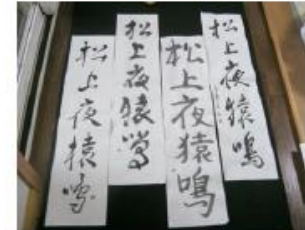 松上夜猿鳴
松上夜猿鳴
松上夜猿鳴
松上夜猿鳴